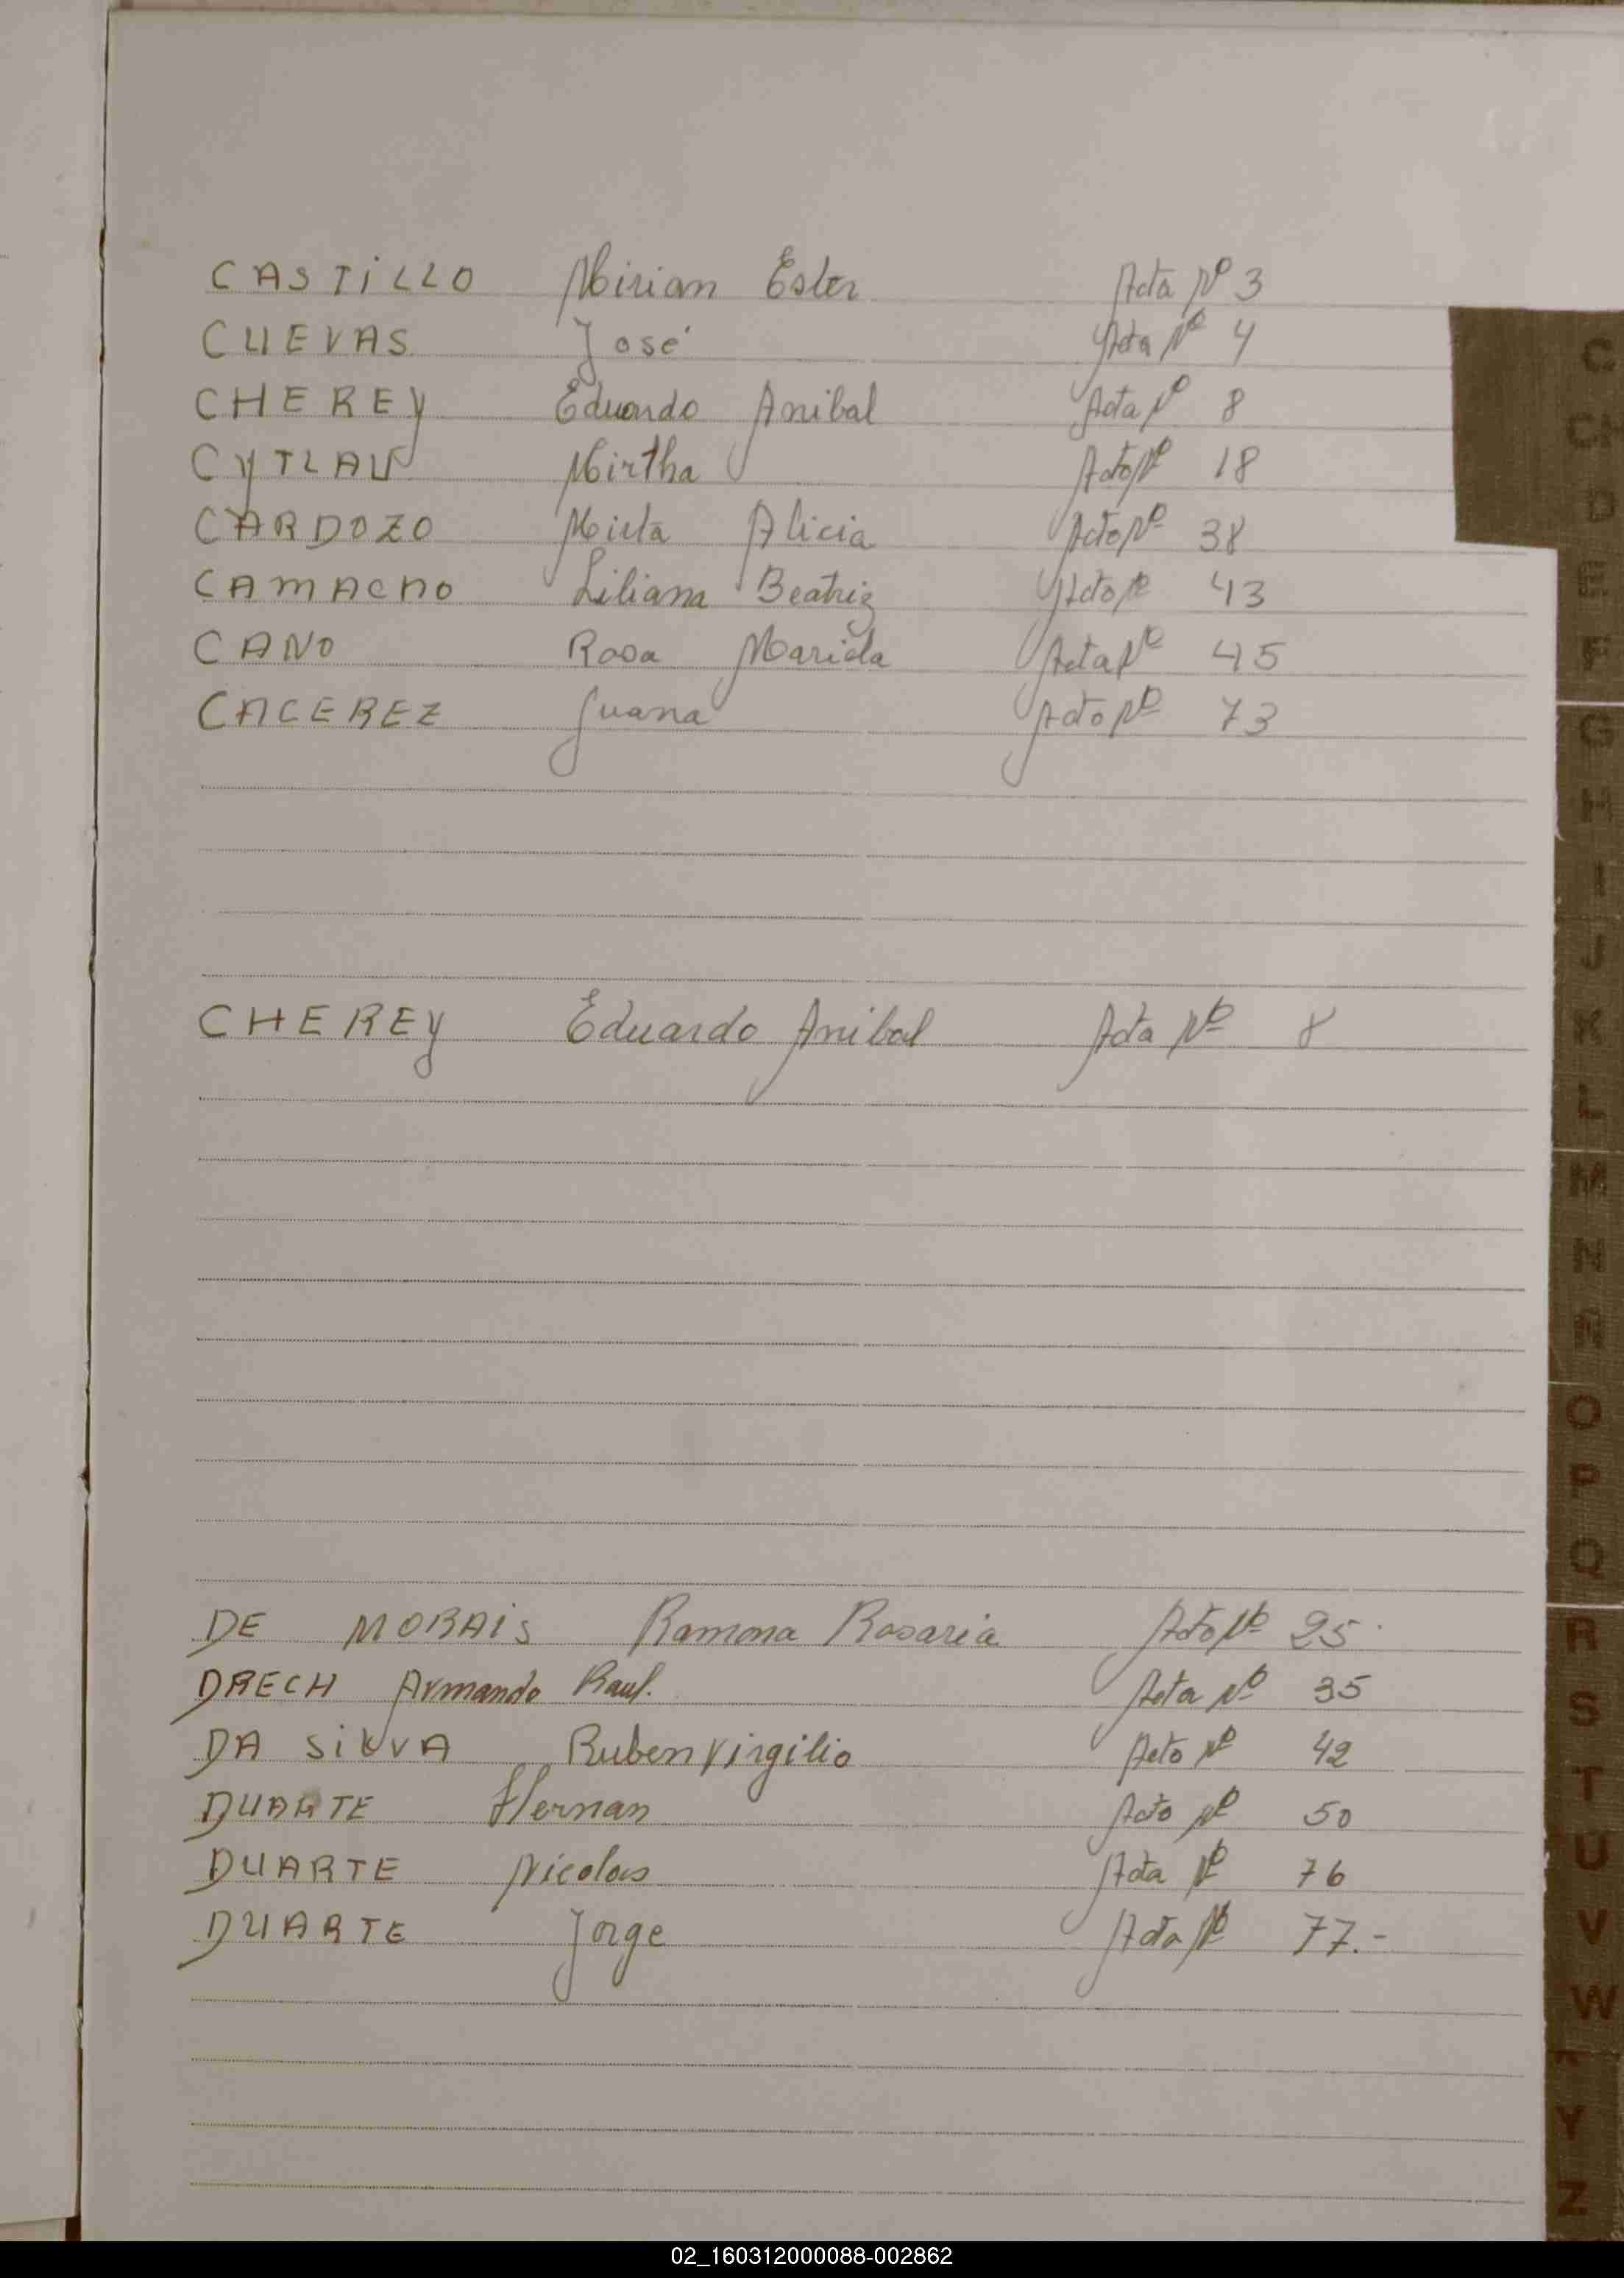 CASTiLLO Mirian Ester Acta Nº 3
CUEVAS José Acta Nº 4
CHEREY Eduardo Anibal Acta Nº 8
CYTLAU Mirtha Acta Nº 18
CARDOZO Mirta Alicia Acta Nº 38
CAMACHO Liliana Beatriz Acta Nº 43
CANO Rosa Mariela Acta Nº 45
CACEREZ Juana Acta Nº 73
CHEREY Eduardo Anibal Acta Nº 8
DE MORAiS Ramona Rosaria Acta Nº 25
DRECH Armando Raul. Acta Nº 35
DA SiLVA Ruben Virgilio Acta Nº 42
DUARTE Hernan Acta Nº 50
DUARTE Nicolas Acta Nº 76
DUARTE Jorge Acta Nº 77.-
C
CH
D
E
F
G
H
I
J
K
L
M
N
Ñ
O
P
Q
R
S
T
U
V
W
X
Y
Z
02_160312000088-002862